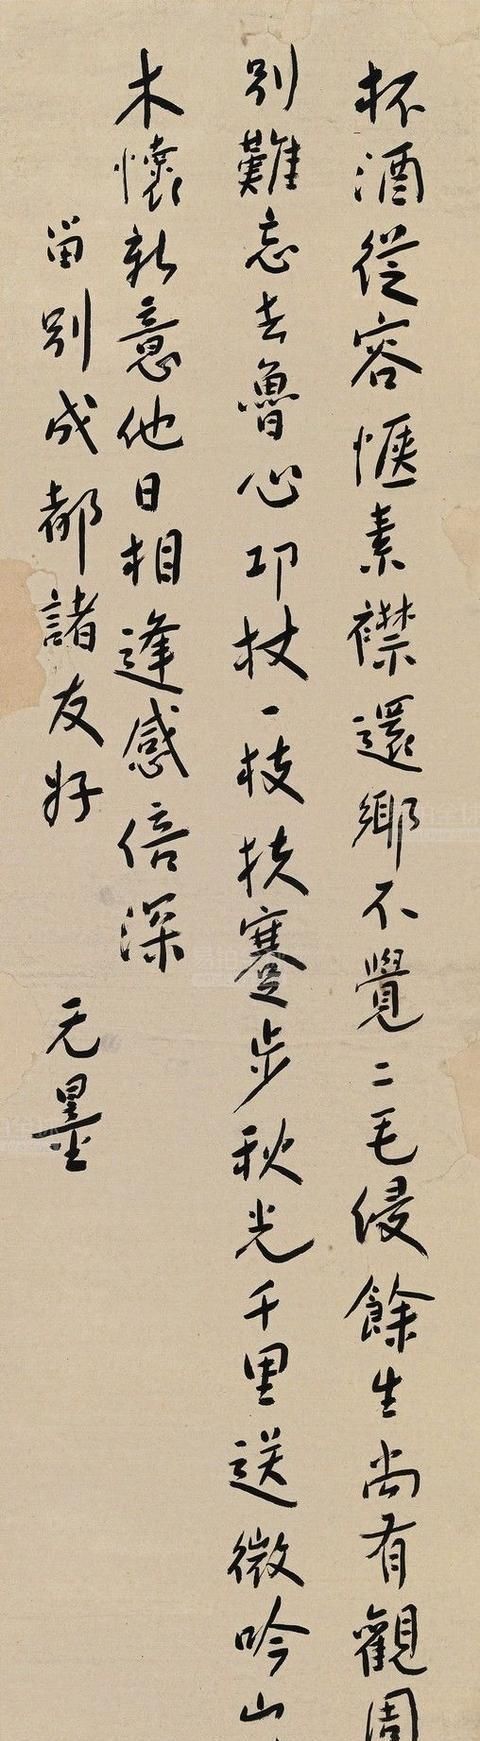 杯酒從容愜素襟還鄉不覺二毛侵餘生尚有觀周
別難忘去魯心邛杖一枝扶蹇步秋光千里送微吟山
木懷新意他日相逢感倍深
留別成都諸友好
无墨